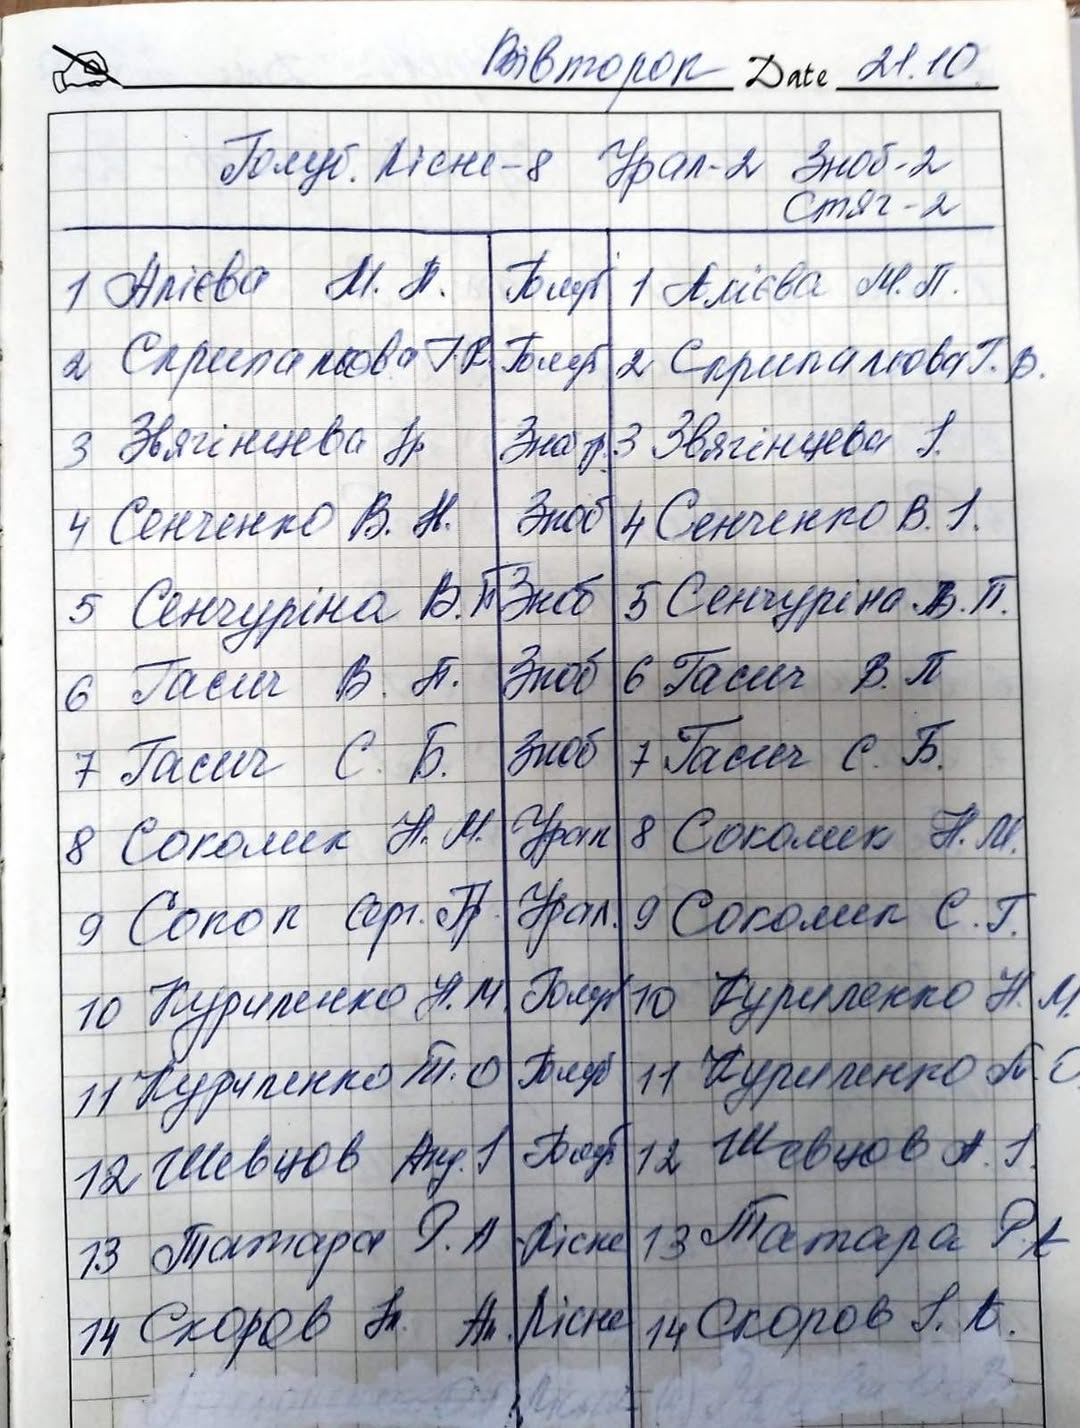 Вівторок Date 21.10
Голуб. Лісне-8 Урал-2 Зноб-2
Стяг-2
1 Алієва М. П. Голуб 1 Алієва М. П.
2 Скрипалюва Г.В Голуб 2 Скрипалюва Г. В.
3 Звягінцева Ір Зноб 3 Звягінцева І.
4 Сенченко В. Н. Зноб 4 Сенченко В. І.
5 Сенчуріна В. П Зноб 5 Сенчуріна В. П.
6 Гасич В. П. Зноб 6 Гасич В. П
7 Гасич С. Б. Зноб 7 Гасич С. Б.
8 Соколик Н. М. Урал 8 Соколик Н. М.
9 Сокол Серг. Гр. Урал. 9 Соколик С. Г.
10 Куриленко Н. М. Голуб 10 Куриленко Н. М.
11 Куриленко О Голуб 11 Куриленко О
12 Шевцов І Голуб 12 Шевцов А. І.
13 Татара Р. А Лісне 13 Татара Р. А
14 Скоров Ан. Лісне 14 Скоров І. А.